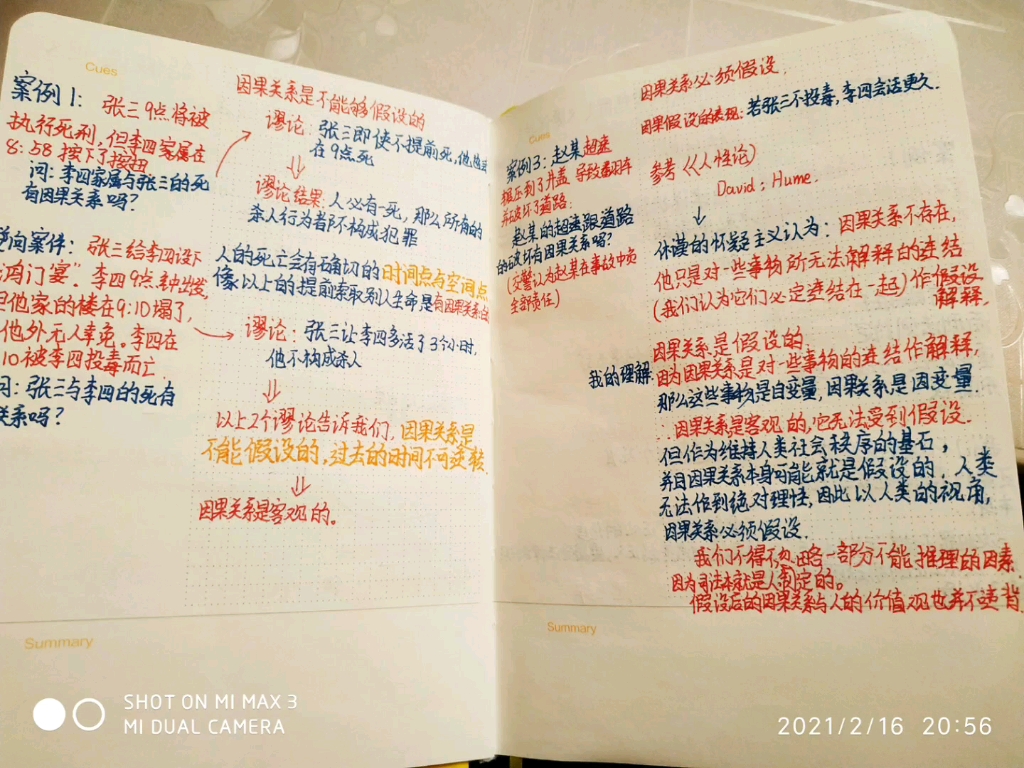 Cues
案例1: 张三9点将被
执行死刑,但李四家属在
8:58按下了按钮
问:李四家属与张三的死
有因果关系吗?
逆向案件: 张三给李四设下
"鸿门宴". 李四9点钟出发,
但他家的楼在9:10塌了,
他外无人幸免. 李四在
10被李四投毒而亡.
问:张三与李四的死有
关系吗?
因果关系是不能够假设的
谬论: 张三即使不提前死,他也会
在9点死
谬论结果: 人必有一死,那么所有的
杀人行为者不构成犯罪
人的死亡会有确切的时间点与空间点,
像以上的提前索取别人生命是有因果关系
谬论: 张三让李四多活了3个小时,
他不构成杀人
以上2个谬论告诉我们,因果关系是
不能假设的,过去的时间不可逆转.
因果关系是客观的。
Summary
因果关系必须假设.
因果假设的表现: 若张三不投毒,李四会活更久.
Cues
案例3: 赵某超速
碾压到了井盖,导致翻车
并破坏了道路.
赵某的超速跟道路
的破坏有因果关系吗?
(交警认为赵某在事故中负
全部责任)
参考《人性论》
David: Hume.
休谟的怀疑主义认为: 因果关系不存在,
他只是对一些事物所无法解释的连结
(我们认为它们必定连结在一起)作假设
解释.
我的理解:
因果关系是假设的
因为因果关系是对一些事物的连结作解释,
那么这些事物是自变量,因果关系是因变量.
∴因果关系是客观的,它无法受到假设.
但作为维持人类社会秩序的基石,
并且因果关系本身可能就是假设的. 人类
无法作到绝对理性,因此以人类的视角,
因果关系必须假设.
我们不得不忽略一部分不能推理的因素
因为司法本就是人制定的。
假设后的因果关系与人的价值观也并不违背
Summary
SHOT ON MI MAX 3
MI DUAL CAMERA
2021/2/16 20:56